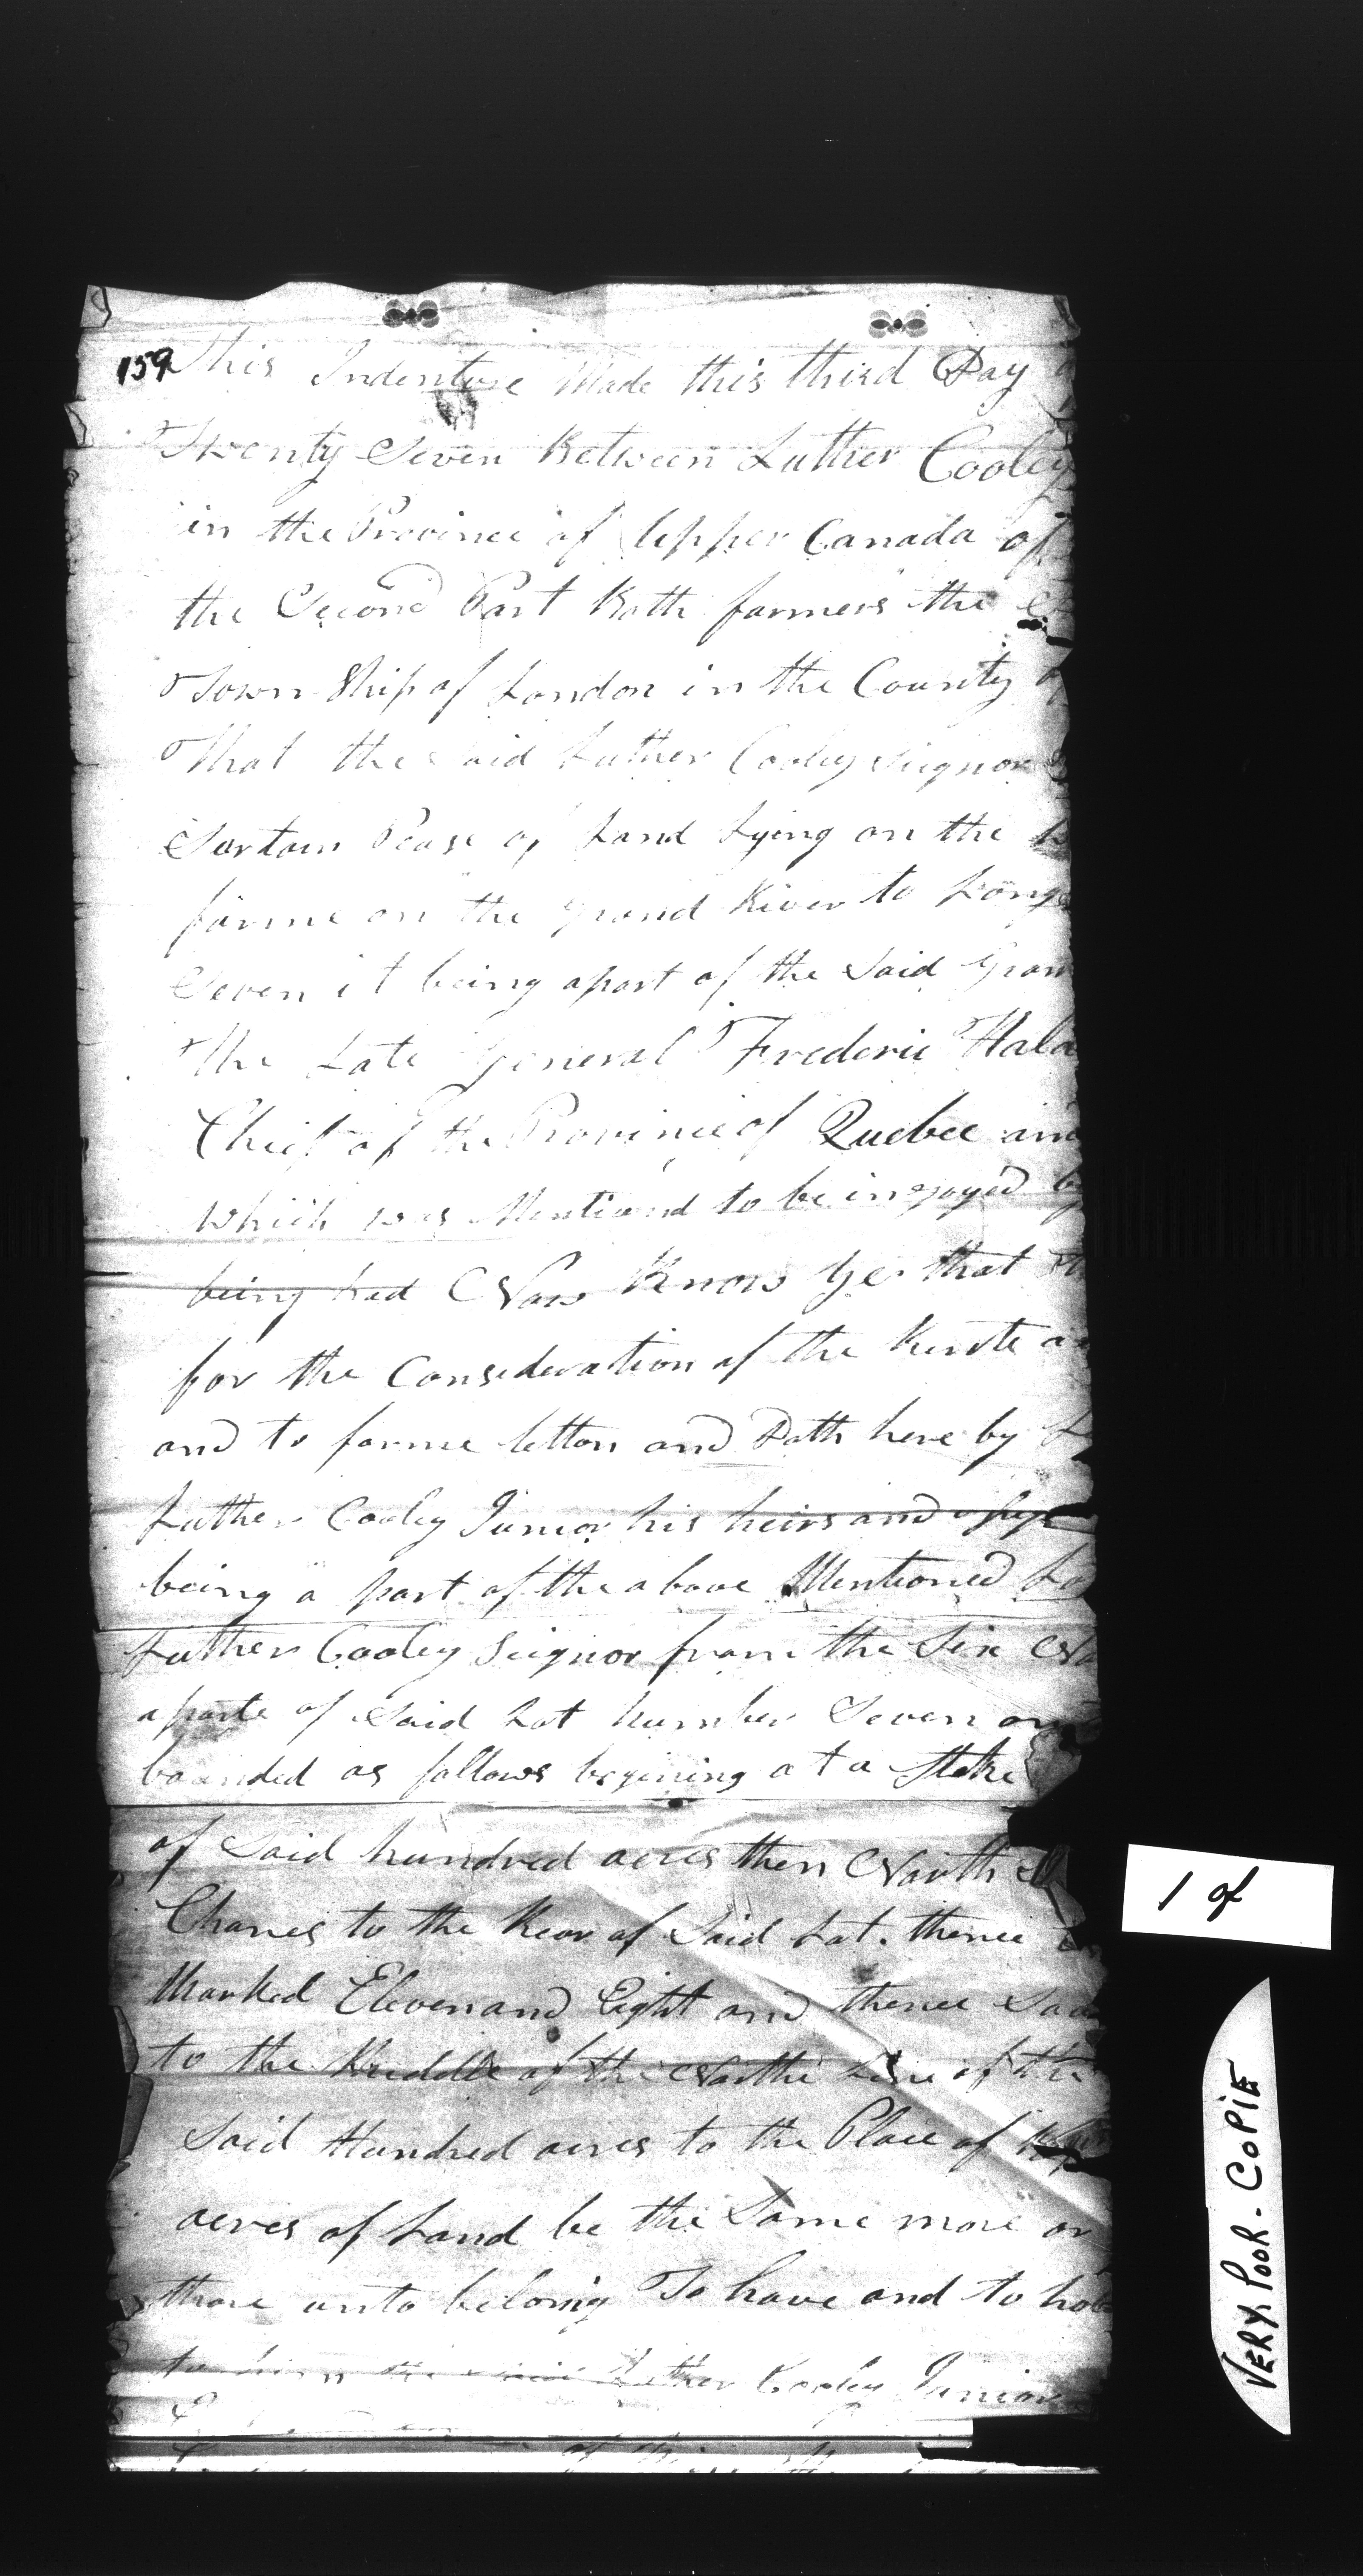 159 This Indenture Made this third Day
Twenty Seven Between Luther Cooley
in the Province of Upper Canada of
the Second Part Both farmers the
Town Ship of London in the County of
That the Said Luther Cooley Seignor
Sartain Pease of Land Lying on the
farme on the grand River to Long
Seven it being apart of the Said Gran
The Late General Frederic Hald
Chief of the Province of Quebec and
which was Mentiond to be injoyed by
being had Now Know Ye that th
for the Consideration of the Rents an
and to farme letton and Doth here by L
Luther Cooley Junior his heirs and
being a part of the above Mentioned Lo
Luther Cooley Seignor from the Six Na
a parte of Said Lot Number Seven on
bounded as follows begining at a Stake
of Said hundred acres then North
Chanes to the Rear of Said Lot. thence
Marked Eleven and Eight and thence Sou
to the Middle of the North Line of the
Said Hundred acres to the Place of
acres of Land be the Same more or
thare unto belonig To have and to hold
to him the said Luther Cooley Junior
1 of
VERY. POOR - COPIE